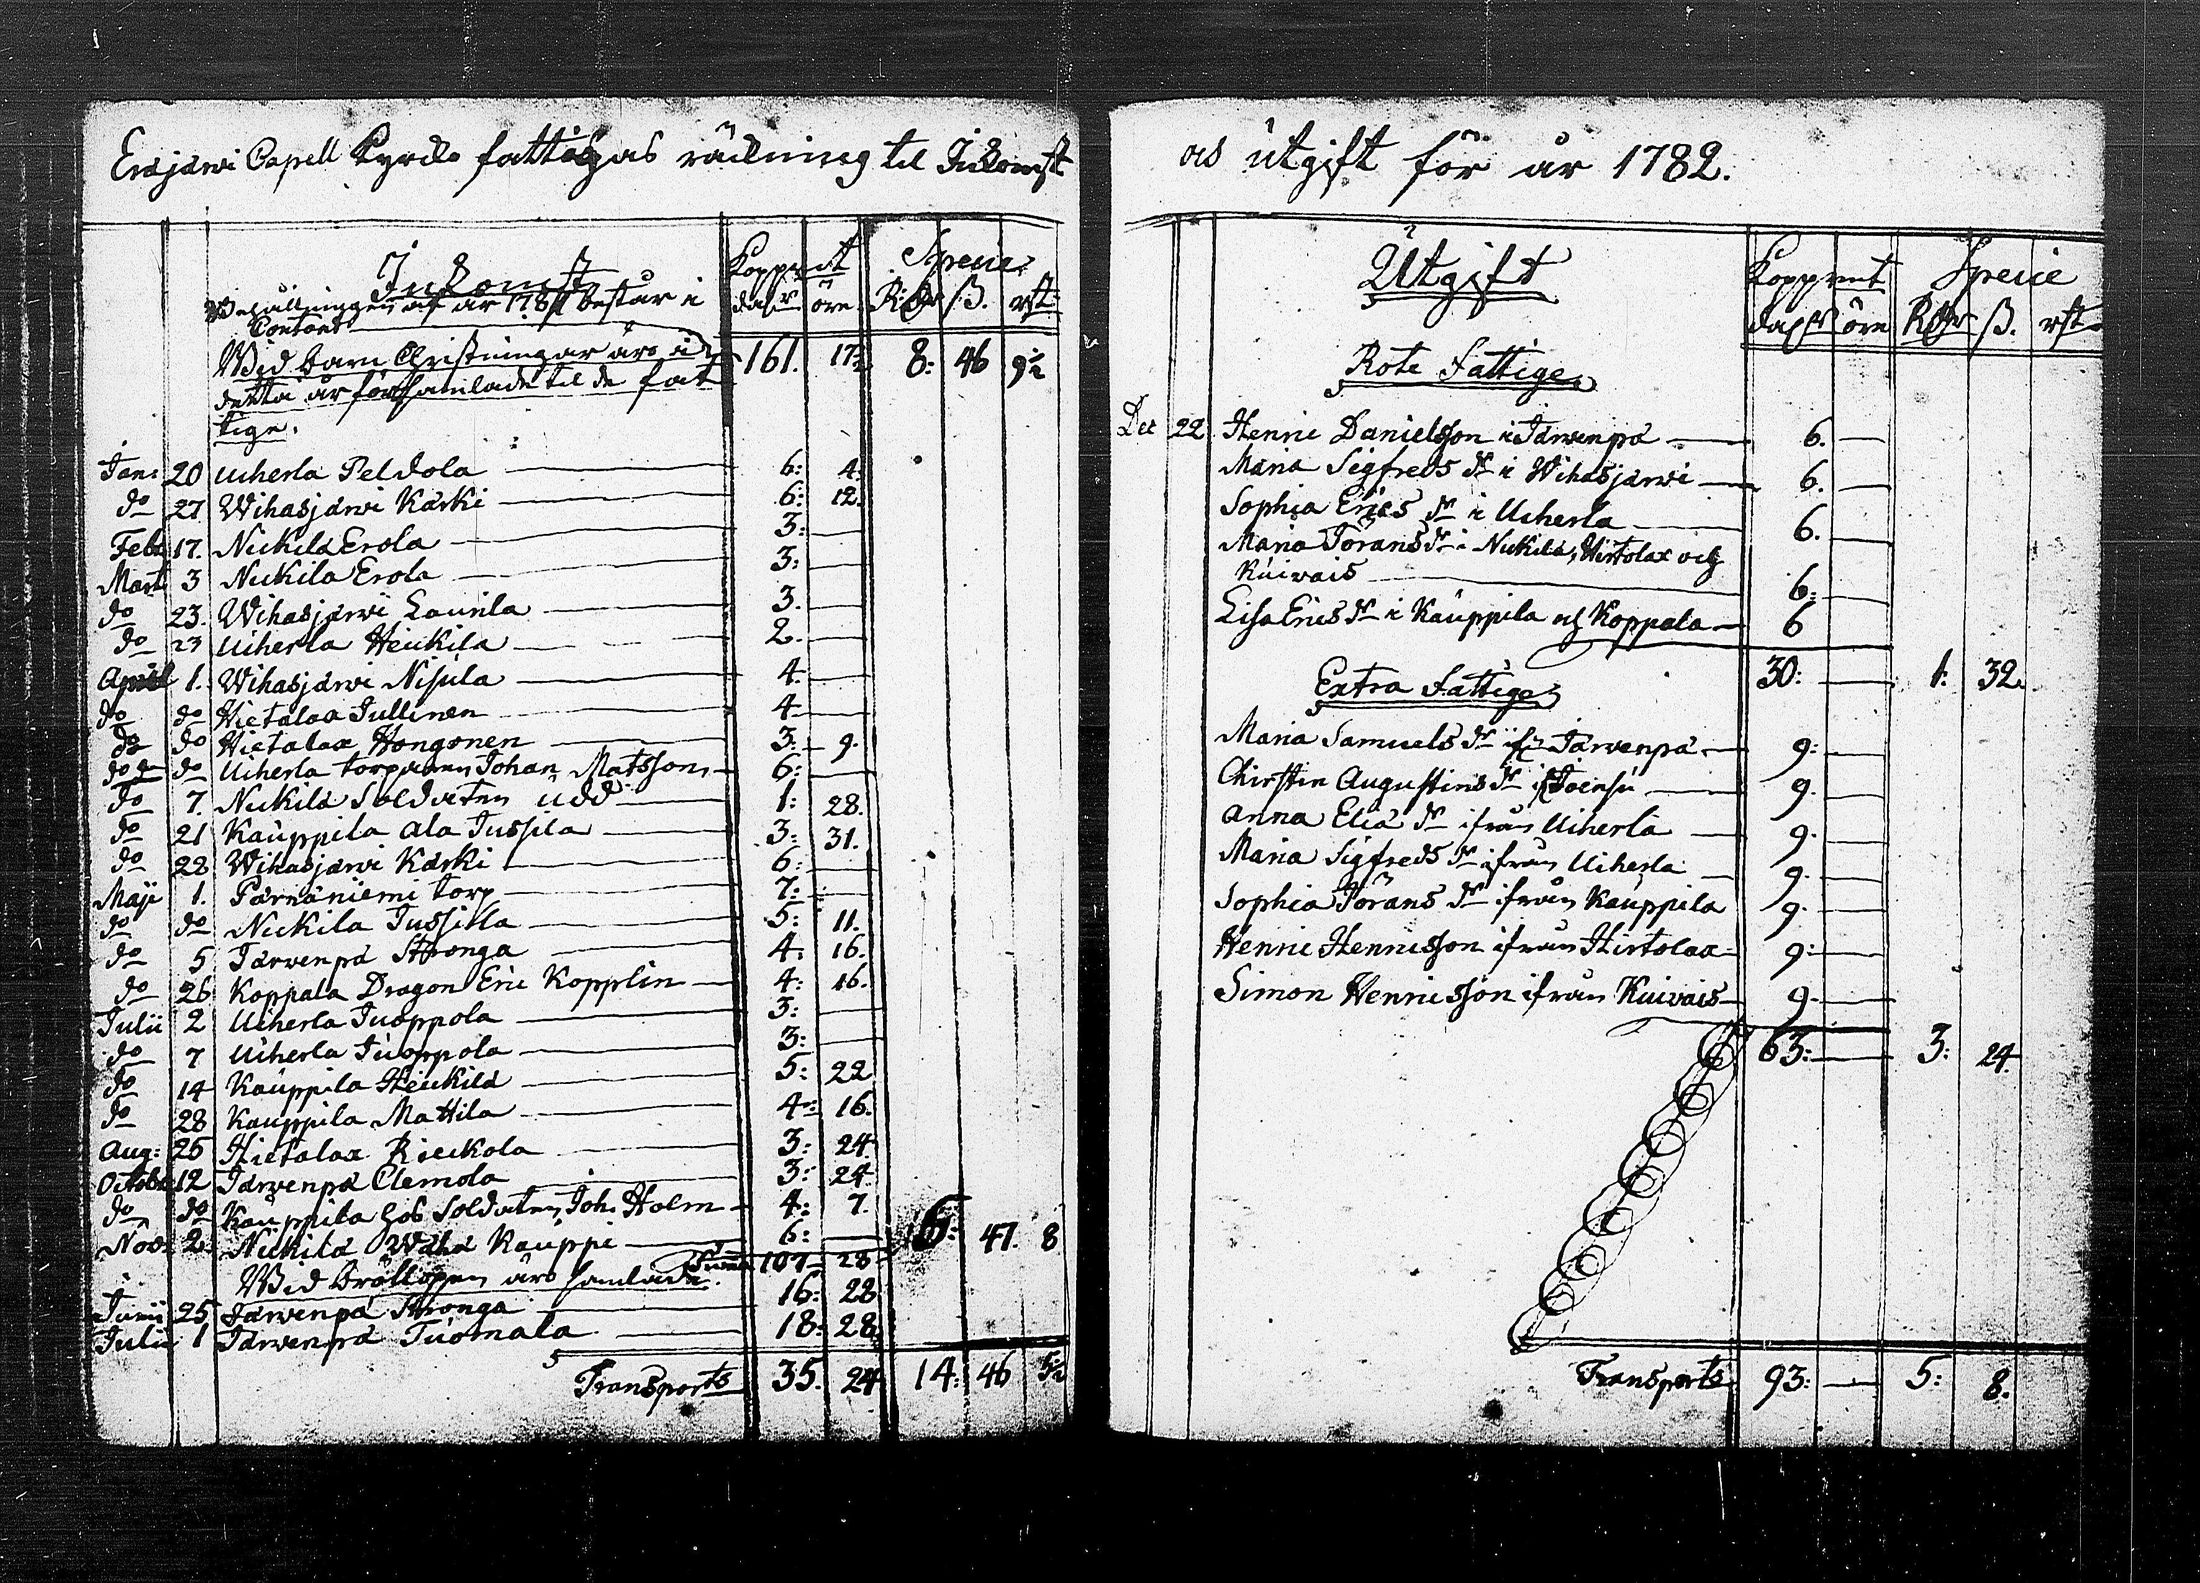 Erajärwi Capell Kyrcko fattigas räkning til Inkomst
Inkomst
Kopp:mt Specie
dal:r öre R:dr ß. rst:
Behållningen af år 1781 består i
Contant 161. 17½ 8: 46 9½
Wid barn Christningar äro i
detta år församlade til de fat
tige.
Jan: 20 Uiherla Peldola 6: 4.
do 27 Wihasjärwi Kärki 6: 12.
Feb: 17. Nickilä Erola 3:
Mart 3 Nickilä Erola 3:
do 23. Wihasjärwi Laurila 3.
do 23 Uiherla Heickilä 2.
April 1. Wihasjärwi Nisula 4.
do do Hietalax Jullinen 4
do do Hietalax Hongonen 3: 9.
do do Uiherla torparen Johan Matsson 6:
do 7. Nickilä Soldaten Udd 1: 28.
do 21 Kauppila Ala Jussila 3: 31.
do 22 Wihasjärwi Kärki 6:
Maji 1. Pärnäniemi torp 7:
do do Nickilä Jussila 5: 11.
do 5 Järvenpä Stronga 4: 16.
do 26 Koppala Dragon Eric Kopplin 4: 16.
Julii 2 Uiherla Juoppola 3:
do 7 Uiherla Juoppola 3:
do 14 Kauppila Heickilä 5: 22
do 28 Kauppila Mattila 4: 16.
Aug: 25 Hietalax Rieckola 3: 24.
Octobr 12 Järwenpä Clemola 3: 24.
do do Kauppila hos Soldaten Joh. Holm 4: 7.
Nov: 2 Nickilä Wähä Kauppi 6:
Summa 107 28 6: 47. 8
Wid bröllopen äro samlade.
Junii 25 Järwenpä Stronga 16: 28
Julii 1 Järwenpä Tuomala 18: 28.
Transports 35. 24 14: 46 5½
och utgift för år 1782.
Utgift
Kopp:mt Specie
dal:r öre R:dr ß. rst.
Rote Fattige
Dec 22 Henric Danielsson i Järwenpä 6.
Maria Sigfreds dr i Wihasjärwi 6.
Sophia Erics dr i Uiherla 6.
Maria Jörans dr i Nickilä, Hirtolax och
Kuivais 6:
Lisa Erics dr i Kauppila och Koppala 6
30: 1: 32.
Extra Fattige
Maria Samuels dr if: Järwenpä 9:
Christin Augustins dr if: Joensu 9.
Anna Eliä dr ifrån Uiherla 9.
Maria Sigfreds dr ifrån Uiherla 9.
Sophia Jörans dr ifrån Kauppila 9.
Henric Henricsson ifrån Hirtolax 9:
Simon Henricsson ifrån Kuivais 9.
63: 3: 24.
Transports 93: 5: 8.